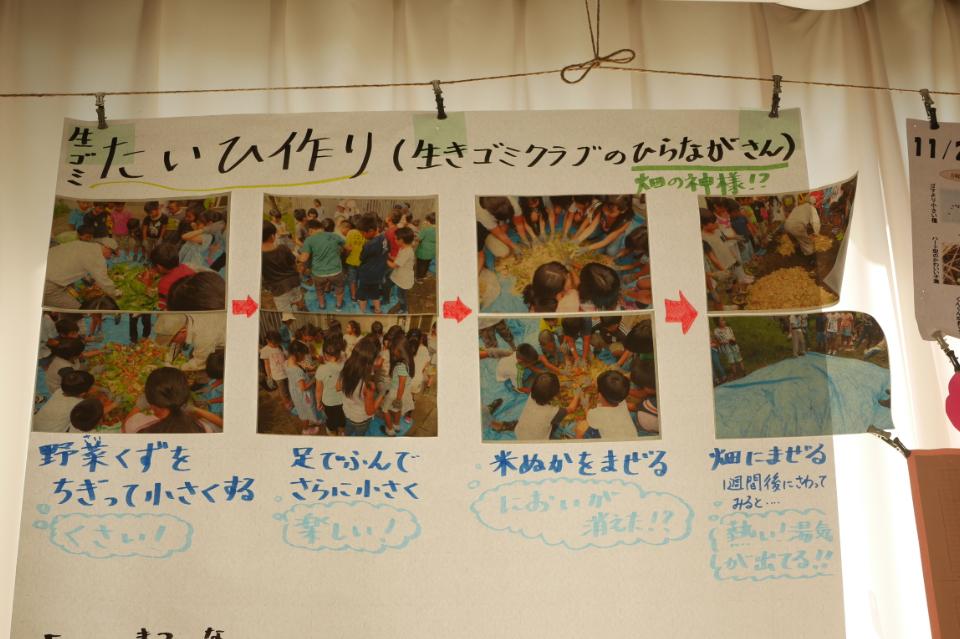 生ゴミ たいひ作り (生きゴミクラブのひらながさん)
畑の神様!?
野菜くずを
ちぎって小さくする
くさい!
足でふんで
さらに小さく
楽しい!
米ぬかをまぜる
においが
消えた!?
畑にまぜる
1週間後にさわって
みると‥‥
熱い!湯気
が出てる!!
11/2